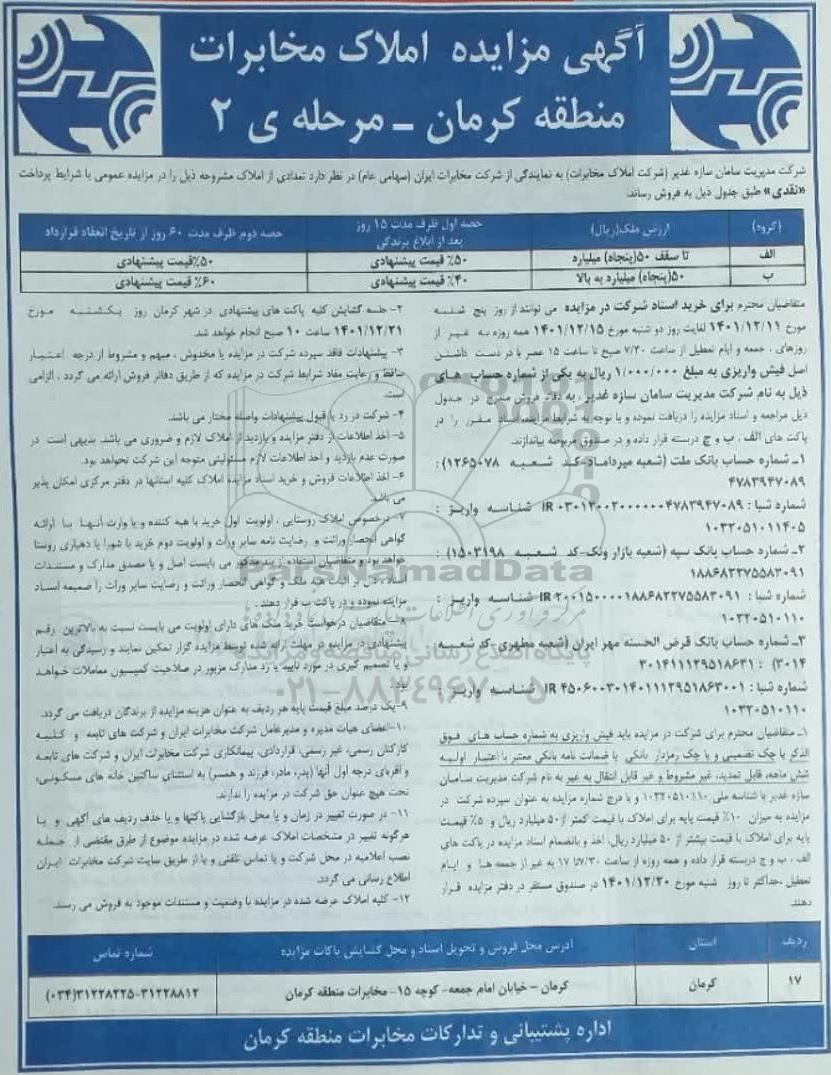 آگهی مزایده املاک مخابرات
منطقه کرمان ـ مرحله ی ۲
شرکت مدیریت سامان سازه غدیر (شرکت املاک مخابرات) به نمایندگی از شرکت مخابرات ایران (سهامی عام) در نظر دارد تعدادی از املاک مشروحه ذیل را در مزایده عمومی با شرایط پرداخت
«نقدی» طبق جدول ذیل به فروش رساند.
(گروه) ارزش ملک(ریال) حصه اول ظرف مدت ۱۵ روز بعد از ابلاغ برندگی حصه دوم ظرف مدت ۶۰ روز از تاریخ انعقاد قرارداد
الف تا سقف ۵۰(پنجاه) میلیارد ۵۰٪ قیمت پیشنهادی ۵۰٪قیمت پیشنهادی
ب ۵۰(پنجاه) میلیارد به بالا ۴۰٪ قیمت پیشنهادی ۶۰٪ قیمت پیشنهادی
متقاضیان محترم برای خرید اسناد شرکت در مزایده می توانند از روز پنج شنبه
مورخ ۱۴۰۱/۱۲/۱۱ لغایت روز دو شنبه مورخ ۱۴۰۱/۱۲/۱۵ همه روزه به غیر از
روزهای ، جمعه و ایام تعطیل از ساعت ۷/۳۰ صبح تا ساعت ۱۵ عصر با در دست داشتن
اصل فیش واریزی به مبلغ ۱/۰۰۰/۰۰۰ ریال به یکی از شماره حساب های
ذیل به نام شرکت مدیریت سامان سازه غدیر ، به دفاتر فروش مندرج در جدول
ذیل مراجعه و اسناد مزایده را دریافت نموده و با توجه به شرایط مزایده اسناد مقرر را در
پاکت های الف ، ب و ج دربسته قرار داده و در صندوق مربوطه بیاندازند.
۱ـ شماره حساب بانک ملت (شعبه میرداماد-کد شعبه ۱۲۶۵۰۷۸) :
۴۷۸۳۹۴۷۰۸۹
شماره شبا : IR ۰۳۰۱۲۰۰۲۰۰۰۰۰۰۴۷۸۳۹۴۷۰۸۹ شناسه واریز :
۱۰۳۲۰۵۱۰۱۱۴۰۵
۲ـ شماره حساب بانک سپه (شعبه بازار ونک-کد شعبه ۱۵۰۳۱۹۸) :
شماره شبا : شناسه واریز :
۱۰۳۲۰۵۱۰۱۱۰
۳ـ شماره حساب بانک قرض الحسنه مهر ایران (شعبه مطهری-کد شعبه
۳۰۱۴) : ۳۰۱۴۱۱۱۲۹۵۱۸۶۳۱
شماره شبا : شناسه واریز :
۱۰۳۲۰۵۱۰۱۱۰
۱ـ متقاضیان محترم برای شرکت در مزایده باید فیش واریزی به شماره حساب های فوق
الذکر یا چک تضمینی و یا چک رمزدار بانکی یا ضمانت نامه بانکی معتبر با اعتبار اولیه
شش ماهه، قابل تمدید، غیر مشروط و غیر قابل انتقال به غیر به نام شرکت مدیریت سامان
سازه غدیر با شناسه ملی ۱۰۳۲۰۵۱۰۱۱۰ و با درج شماره مزایده به عنوان سپرده شرکت در
مزایده به میزان ۱۰٪ قیمت پایه برای املاک با قیمت کمتر از ۵۰ میلیارد ریال و ۵٪ قیمت
پایه برای املاک با قیمت بیشتر از ۵۰ میلیارد ریال، اخذ و بانضمام اسناد مزایده در پاکت های
الف ، ب و ج دربسته قرار داده و همه روزه از ساعت ۷/۳۰ تا ۱۷ به غیر از جمعه ها و ایام
تعطیل ،حداکثر تا روز شنبه مورخ ۱۴۰۱/۱۲/۲۰ در صندوق مستقر در دفتر مزایده قرار
دهند.
۲- جلسه گشایش کلیه پاکت های پیشنهادی در شهر کرمان روز یکشنبه مورخ
۱۴۰۱/۱۲/۲۱ ساعت ۱۰ صبح انجام خواهد شد.
۳- پیشنهادات فاقد سپرده شرکت در مزایده یا مخدوش ، مبهم و مشروط از درجه اعتبار
ساقط و رعایت مفاد شرایط شرکت در مزایده که از طریق دفاتر فروش ارائه می گردد ، الزامی
است.
۴- شرکت در رد یا قبول پیشنهادات واصله مختار می باشد.
۵- اخذ اطلاعات از دفتر مزایده و بازدید از املاک لازم و ضروری می باشد. بدیهی است در
صورت عدم بازدید و اخذ اطلاعات لازم مسئولیتی متوجه این شرکت نخواهد بود.
۶- اخذ اطلاعات فروش و خرید اسناد مزایده املاک کلیه استانها در دفتر مرکزی امکان پذیر
می باشد.
۷- درخصوص املاک روستایی ، اولویت اول خرید با هبه کننده و یا وراث آنها با ارائه
گواهی انحصار وراثت و رضایت نامه سایر وراث و اولویت دوم خرید با شورا یا دهیاری روستا
خواهد بود و متقاضیان استفاده از بند مذکور می بایست اصل و یا مصدق مدارک و مستندات
اسناد دال بر اثبات هبه ملک و گواهی انحصار وراثت و رضایت سایر وراث را ضمیمه اسناد
مزایده نموده و در پاکت ب قرار دهند.
۸- متقاضیان درخواست خرید ملک های دارای اولویت می بایست نسبت به بالاترین رقم
پیشنهادی در مزایده در مهلت ارائه شده توسط مزایده گزار تمکین نمایند و رسیدگی به اعتبار
و یا تصمیم گیری در مورد تایید یا رد مدارک مزبور در صلاحیت کمیسیون معاملات خواهد
بود.
۹-یک درصد مبلغ قیمت پایه هر ردیف به عنوان هزینه مزایده از برندگان دریافت می گردد.
۱۰-اعضای هیات مدیره و مدیرعامل شرکت مخابرات ایران و شرکت های تابعه و کلیه
کارکنان رسمی، غیر رسمی، قراردادی، پیمانکاری شرکت مخابرات ایران و شرکت های تابعه
و اقربای درجه اول آنها (پدر، مادر، فرزند و همسر) به استثنای ساکنین خانه های مسکونی،
تحت هیچ عنوان حق شرکت در مزایده را ندارند.
۱۱- در صورت تغییر در زمان و یا محل بازگشایی پاکتها و یا حذف ردیف های آگهی و یا
هرگونه تغییر در مشخصات املاک عرضه شده در مزایده موضوع از طرق مقتضی از جمله
نصب اعلامیه در محل شرکت و یا تماس تلفنی و یا از طریق سایت شرکت مخابرات ایران
اطلاع رسانی می گردد.
۱۲- کلیه املاک عرضه شده در مزایده با وضعیت و مستندات موجود به فروش می رسند.
ردیف استان ادرس محل فروش و تحویل اسناد و محل گشایش پاکات مزایده شماره تماس
۱۷ کرمان کرمان – خیابان امام جمعه- کوچه ۱۵- مخابرات منطقه کرمان ۳۱۲۲۸۸۱۲-۳۱۲۲۸۲۲۵(۰۳۴)
اداره پشتیبانی و تدارکات مخابرات منطقه کرمان
ParsNamadData
پایگاه اطلاع رسانی مناقصه و مزایده
۰۲۱-۸۸۳۴۹۶۷۰-۵